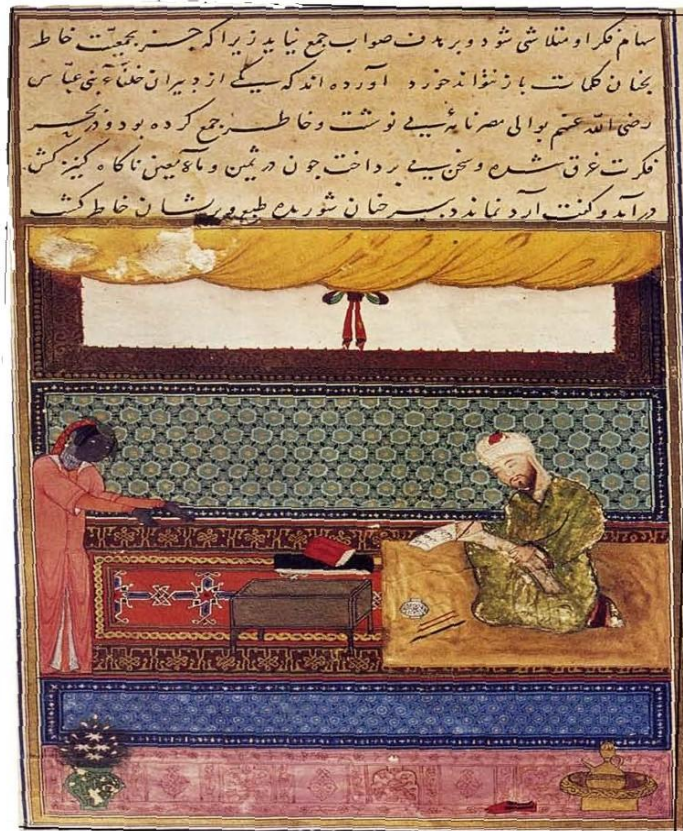 سهام فکر او متلاشی شود و بر هدف صواب جمع نیاید زیرا که جز بجمعیّت خاطر
بچنان کلمات باز نتواند خورد آورده اند که یکی از دبیران خلفاء بنی عبّاس
رضی الله عنهم بوالی مصر نامهٔ می نوشت و خاطر جمع کرده بود و در بحر
فکرت غرق شده و سخن می پرداخت چون در ثمین و ماء معین ناکاه کنیزکش
درآمد و کفت آرد نماند دبیر چنان شوریده طبع و پریشان خاطر کشت